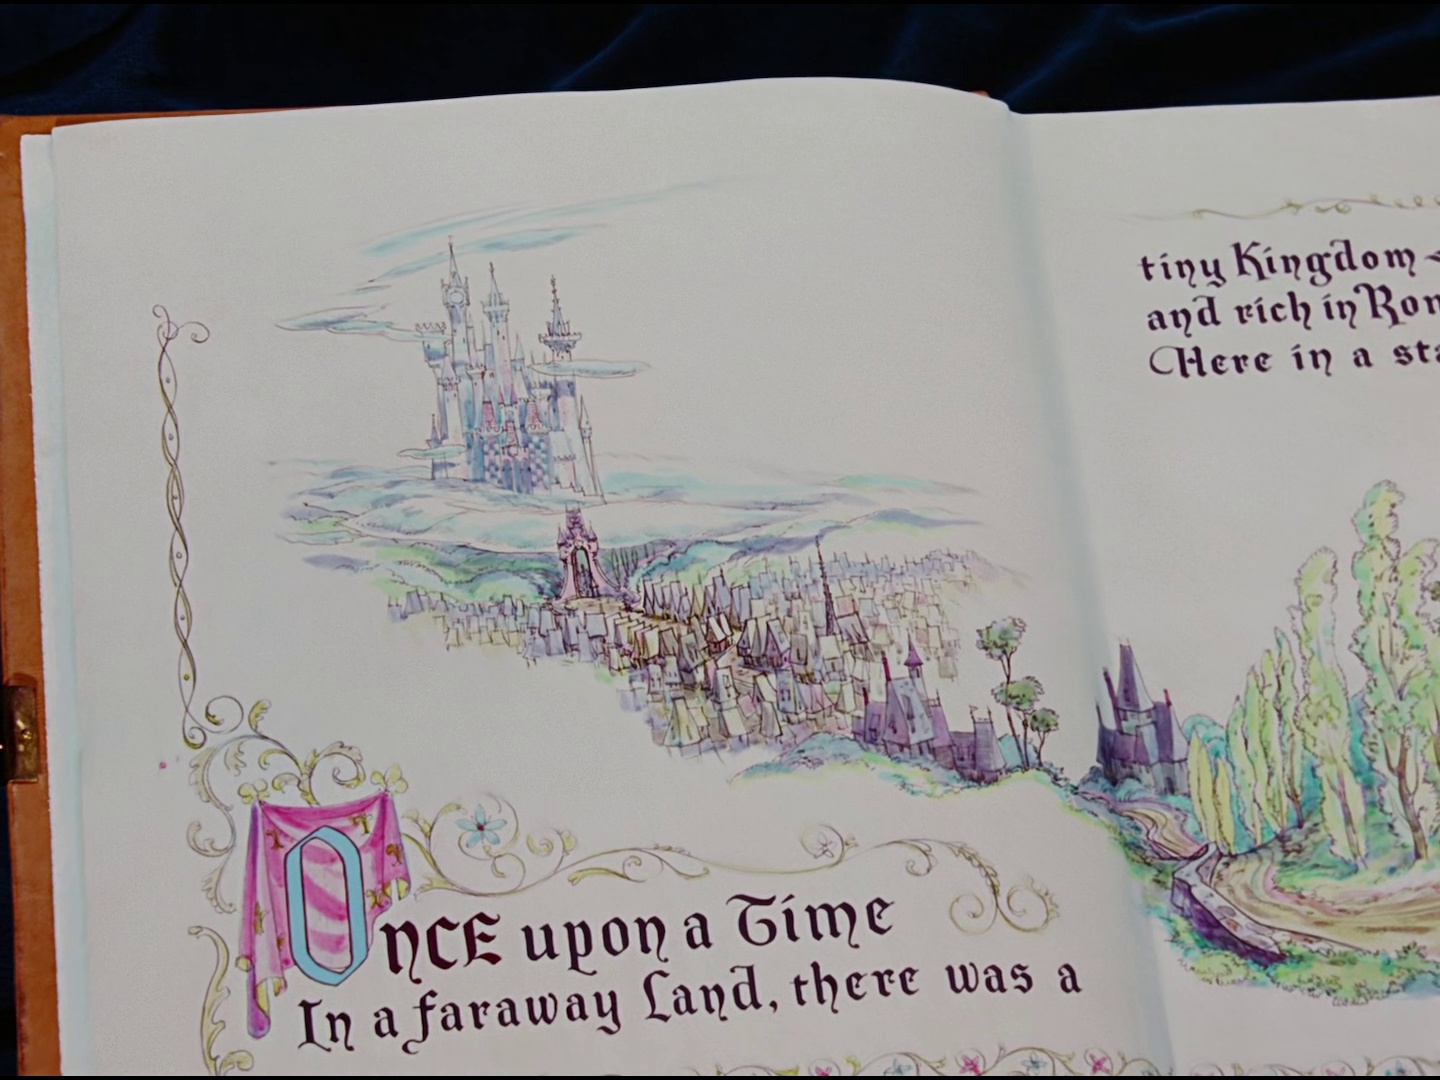 Once upon a Time
In a faraway Land, there was a
tiny Kingdom
and rich in
Here in a